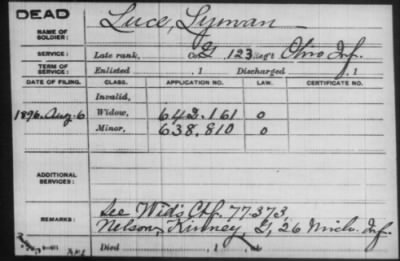 DEAD
NAME OF SOLDIER: Luce, Lyman
SERVICE: Late rank, Co. G, 123 Reg't Ohio Inf.
TERM OF SERVICE: Enlisted , 1 Discharged , 1
DATE OF FILING. CLASS. APPLICATION NO. LAW. CERTIFICATE NO.
Invalid,
1896. Aug. 6 Widow, 642.161 o
Minor, 638.810 o
ADDITIONAL SERVICES:
REMARKS: See Wid's Ctf. 77.373,
Nelson, Kinney, G, 26 Mich. Inf.
Died , 1 , at